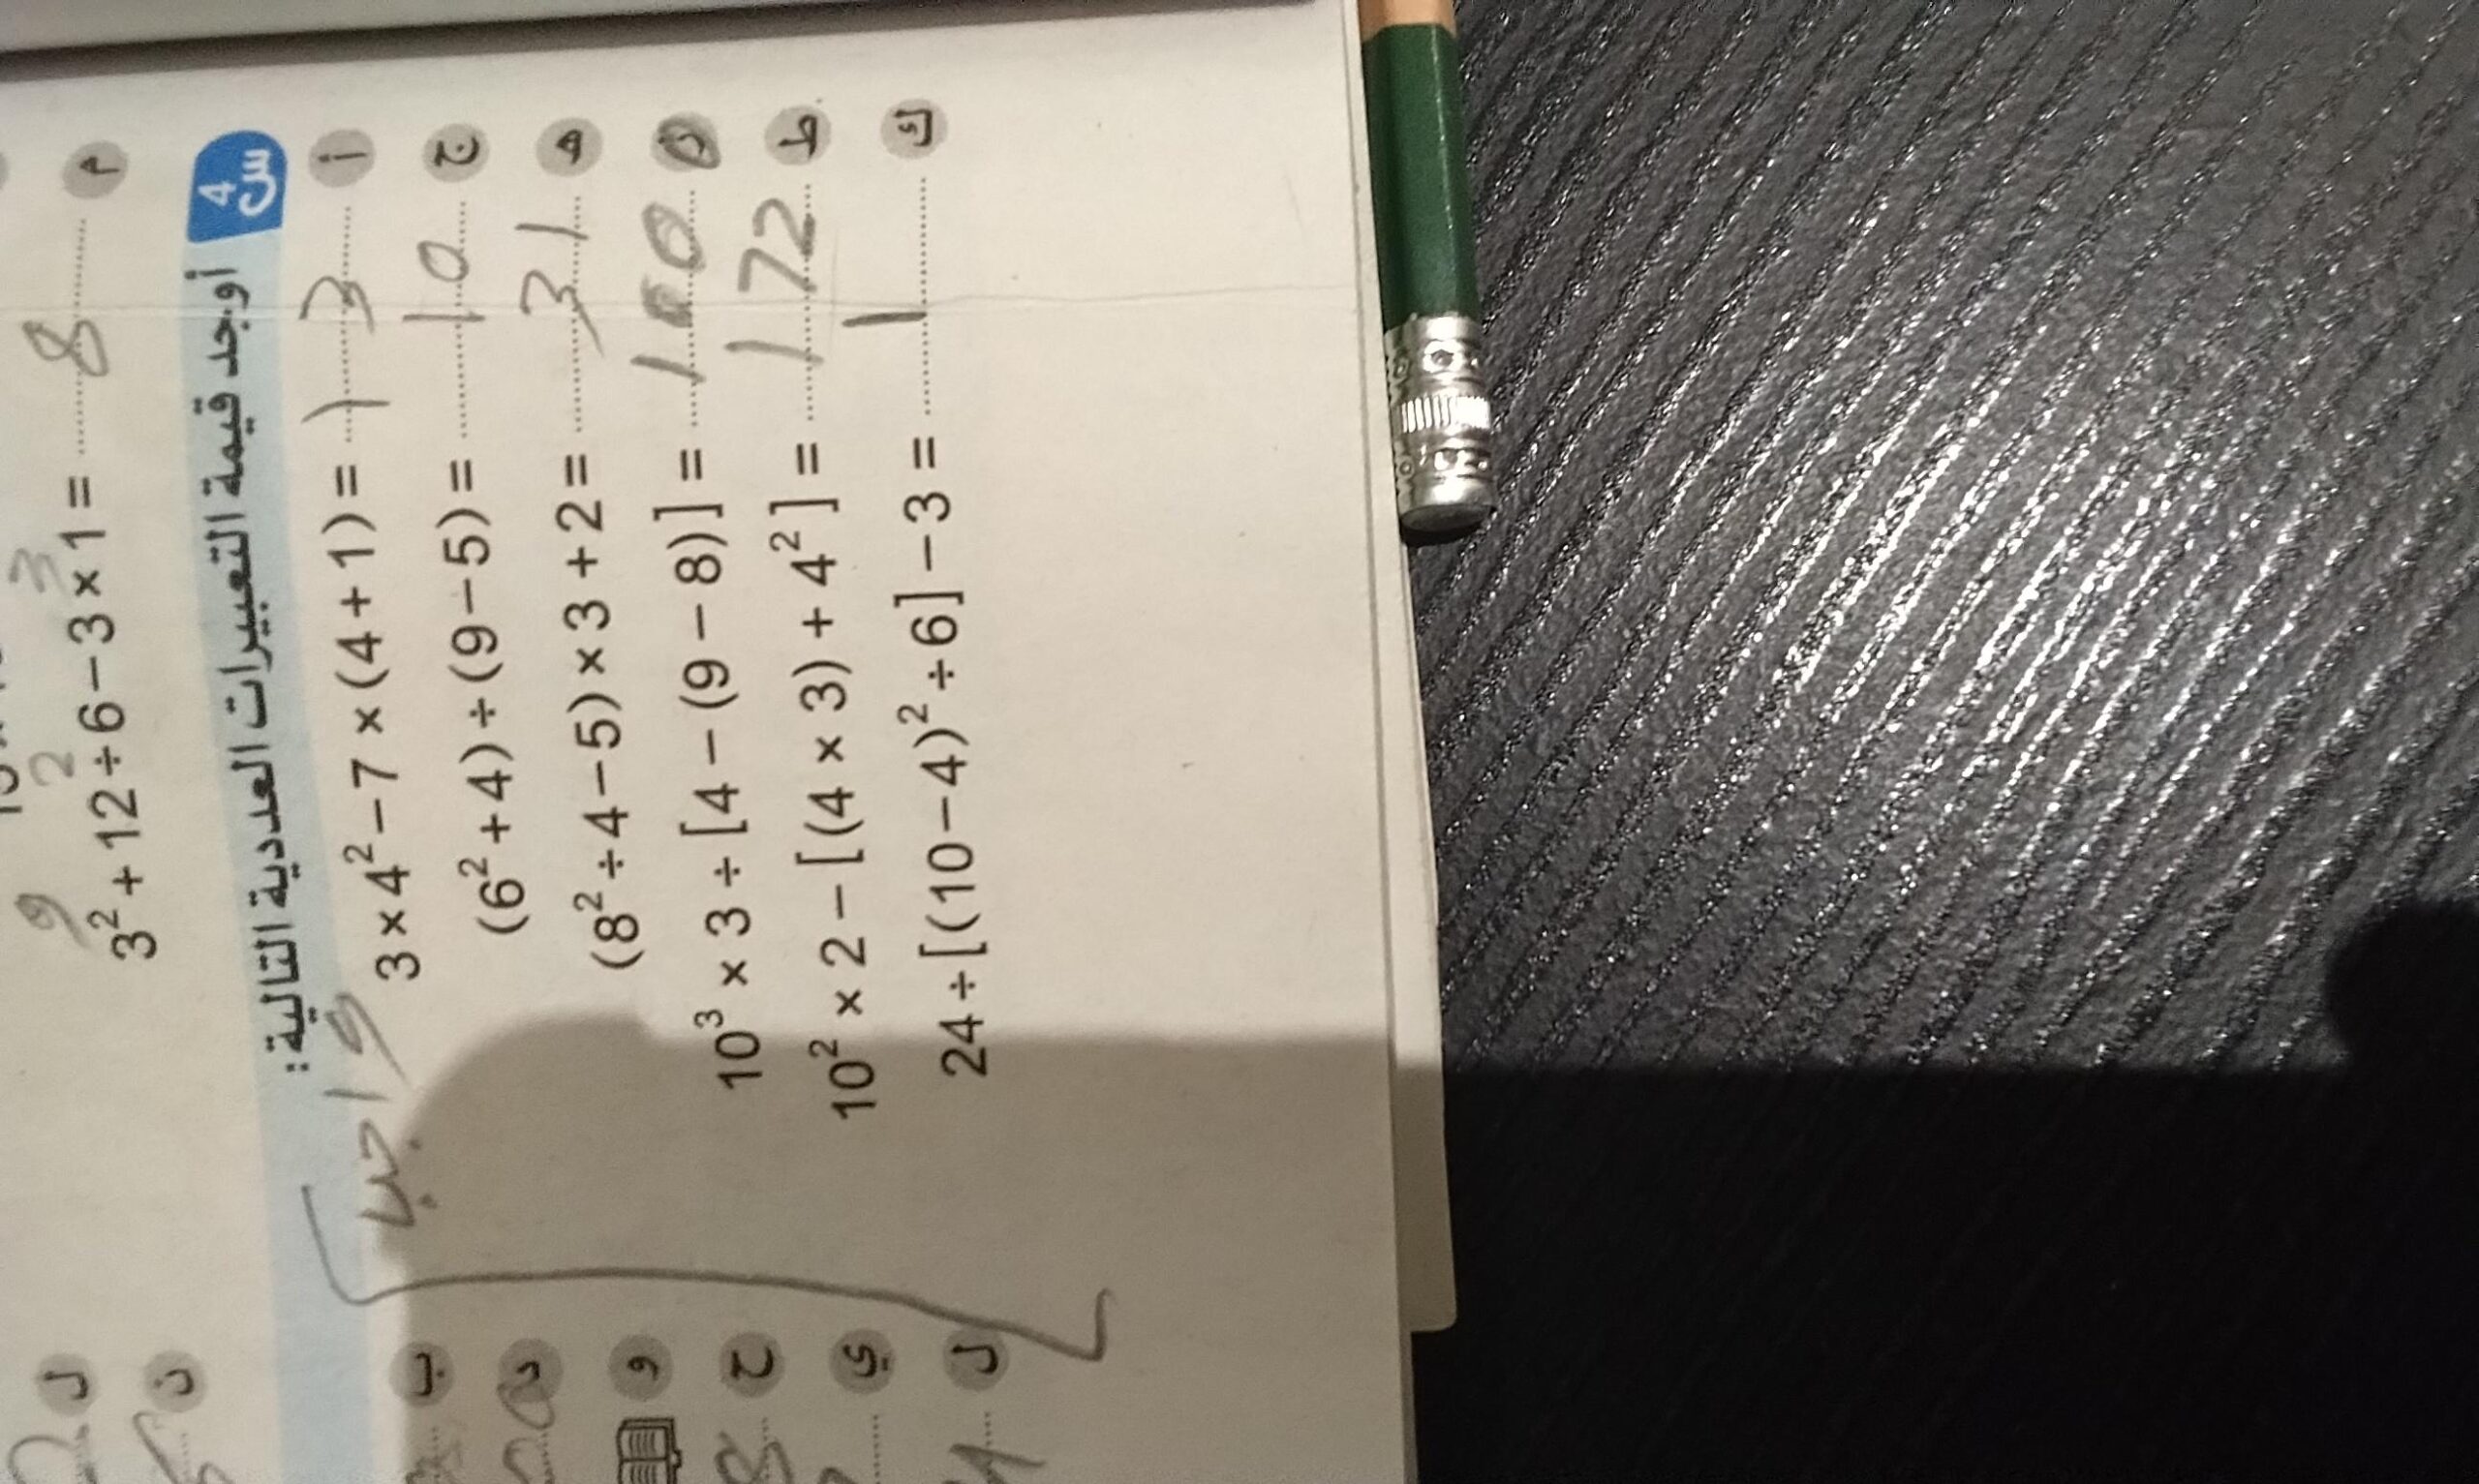 م 3² + 12 ÷ 6 − 3 × 1 = 8
9 2 3
س 4 أوجد قيمة التعبيرات العددية التالية:
واجب
أ 3 × 4² − 7 × (4 + 1) = 13
ج (6² + 4) ÷ (9 − 5) = 10
ه (8² ÷ 4 − 5) × 3 + 2 = 31
10³ × 3 ÷ [4 − (9 − 8)] =
ط 10² × 2 − [(4 × 3) + 4²] = 172
ك 24 ÷ [(10 − 4)² ÷ 6] − 3 = 1
ل
ن
ب
د
و
ح
ي
ل